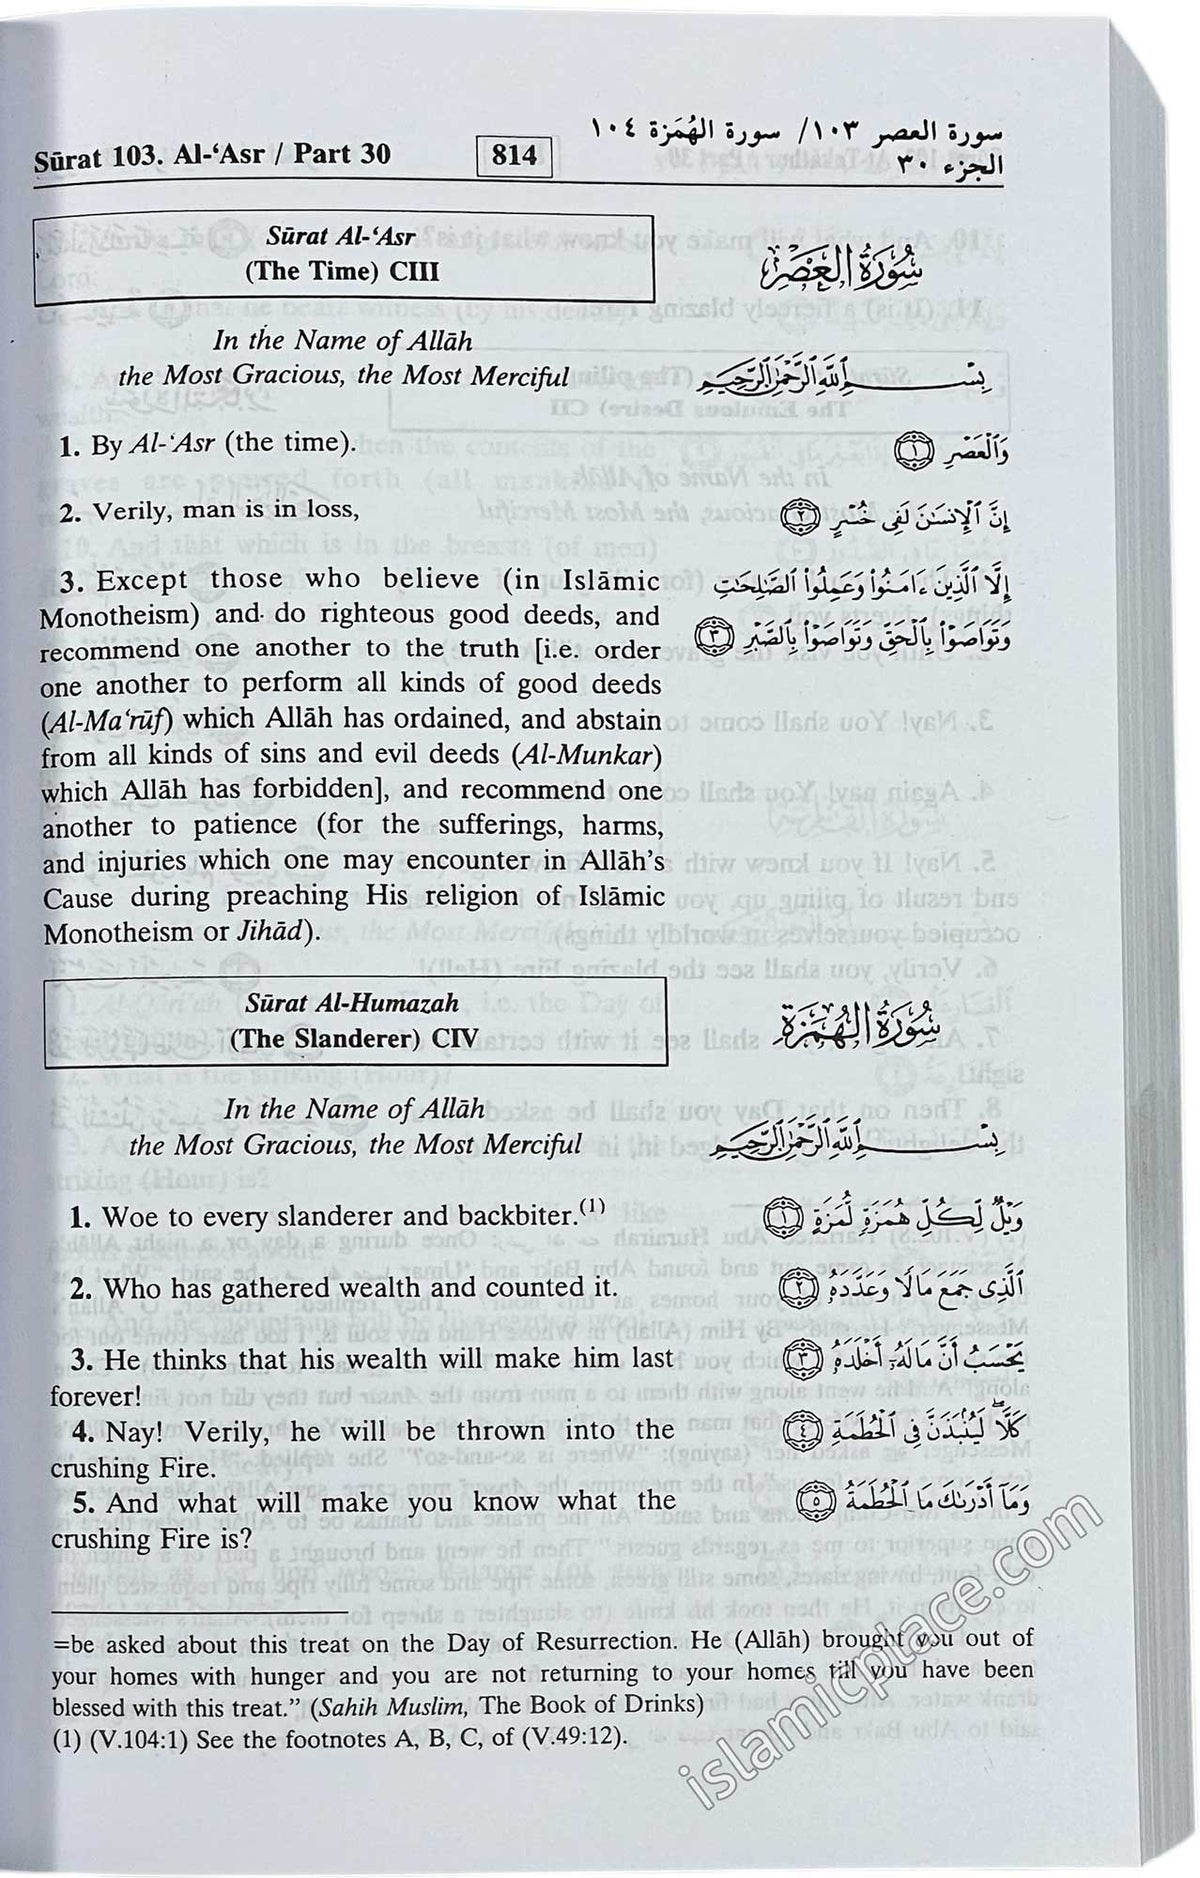 Sūrat 103. Al-‘Asr / Part 30
814
سورة العصر ١٠٣/ سورة الهُمَزة ١٠٤
الجزء ٣٠
Sūrat Al-‘Asr
(The Time) CIII
سُورَةُ العَصْرِ
In the Name of Allāh
the Most Gracious, the Most Merciful
بِسْمِ ٱللَّهِ ٱلرَّحْمَٰنِ ٱلرَّحِيمِ
1. By Al-‘Asr (the time).
وَٱلْعَصْرِ ١
2. Verily, man is in loss,
إِنَّ ٱلْإِنسَٰنَ لَفِى خُسْرٍ ٢
3. Except those who believe (in Islāmic
Monotheism) and do righteous good deeds, and
recommend one another to the truth [i.e. order
one another to perform all kinds of good deeds
(Al-Ma‘rūf) which Allāh has ordained, and abstain
from all kinds of sins and evil deeds (Al-Munkar)
which Allāh has forbidden], and recommend one
another to patience (for the sufferings, harms,
and injuries which one may encounter in Allāh’s
Cause during preaching His religion of Islāmic
Monotheism or Jihād).
إِلَّا ٱلَّذِينَ ءَامَنُوا۟ وَعَمِلُوا۟ ٱلصَّٰلِحَٰتِ
وَتَوَاصَوْا۟ بِٱلْحَقِّ وَتَوَاصَوْا۟ بِٱلصَّبْرِ ٣
Sūrat Al-Humazah
(The Slanderer) CIV
سُورَةُ الهُمَزَةِ
In the Name of Allāh
the Most Gracious, the Most Merciful
بِسْمِ ٱللَّهِ ٱلرَّحْمَٰنِ ٱلرَّحِيمِ
1. Woe to every slanderer and backbiter.(1)
وَيْلٌ لِّكُلِّ هُمَزَةٍ لُّمَزَةٍ ١
2. Who has gathered wealth and counted it.
ٱلَّذِى جَمَعَ مَالًا وَعَدَّدَهُۥ ٢
3. He thinks that his wealth will make him last
forever!
يَحْسَبُ أَنَّ مَالَهُۥٓ أَخْلَدَهُۥ ٣
4. Nay! Verily, he will be thrown into the
crushing Fire.
كَلَّا ۖ لَيُنۢبَذَنَّ فِى ٱلْحُطَمَةِ ٤
5. And what will make you know what the
crushing Fire is?
وَمَآ أَدْرَىٰكَ مَا ٱلْحُطَمَةُ ٥
=be asked about this treat on the Day of Resurrection. He (Allāh) brought you out of
your homes with hunger and you are not returning to your homes till you have been
blessed with this treat.” (Sahih Muslim, The Book of Drinks)
(1) (V.104:1) See the footnotes A, B, C, of (V.49:12).
islamicplace.com